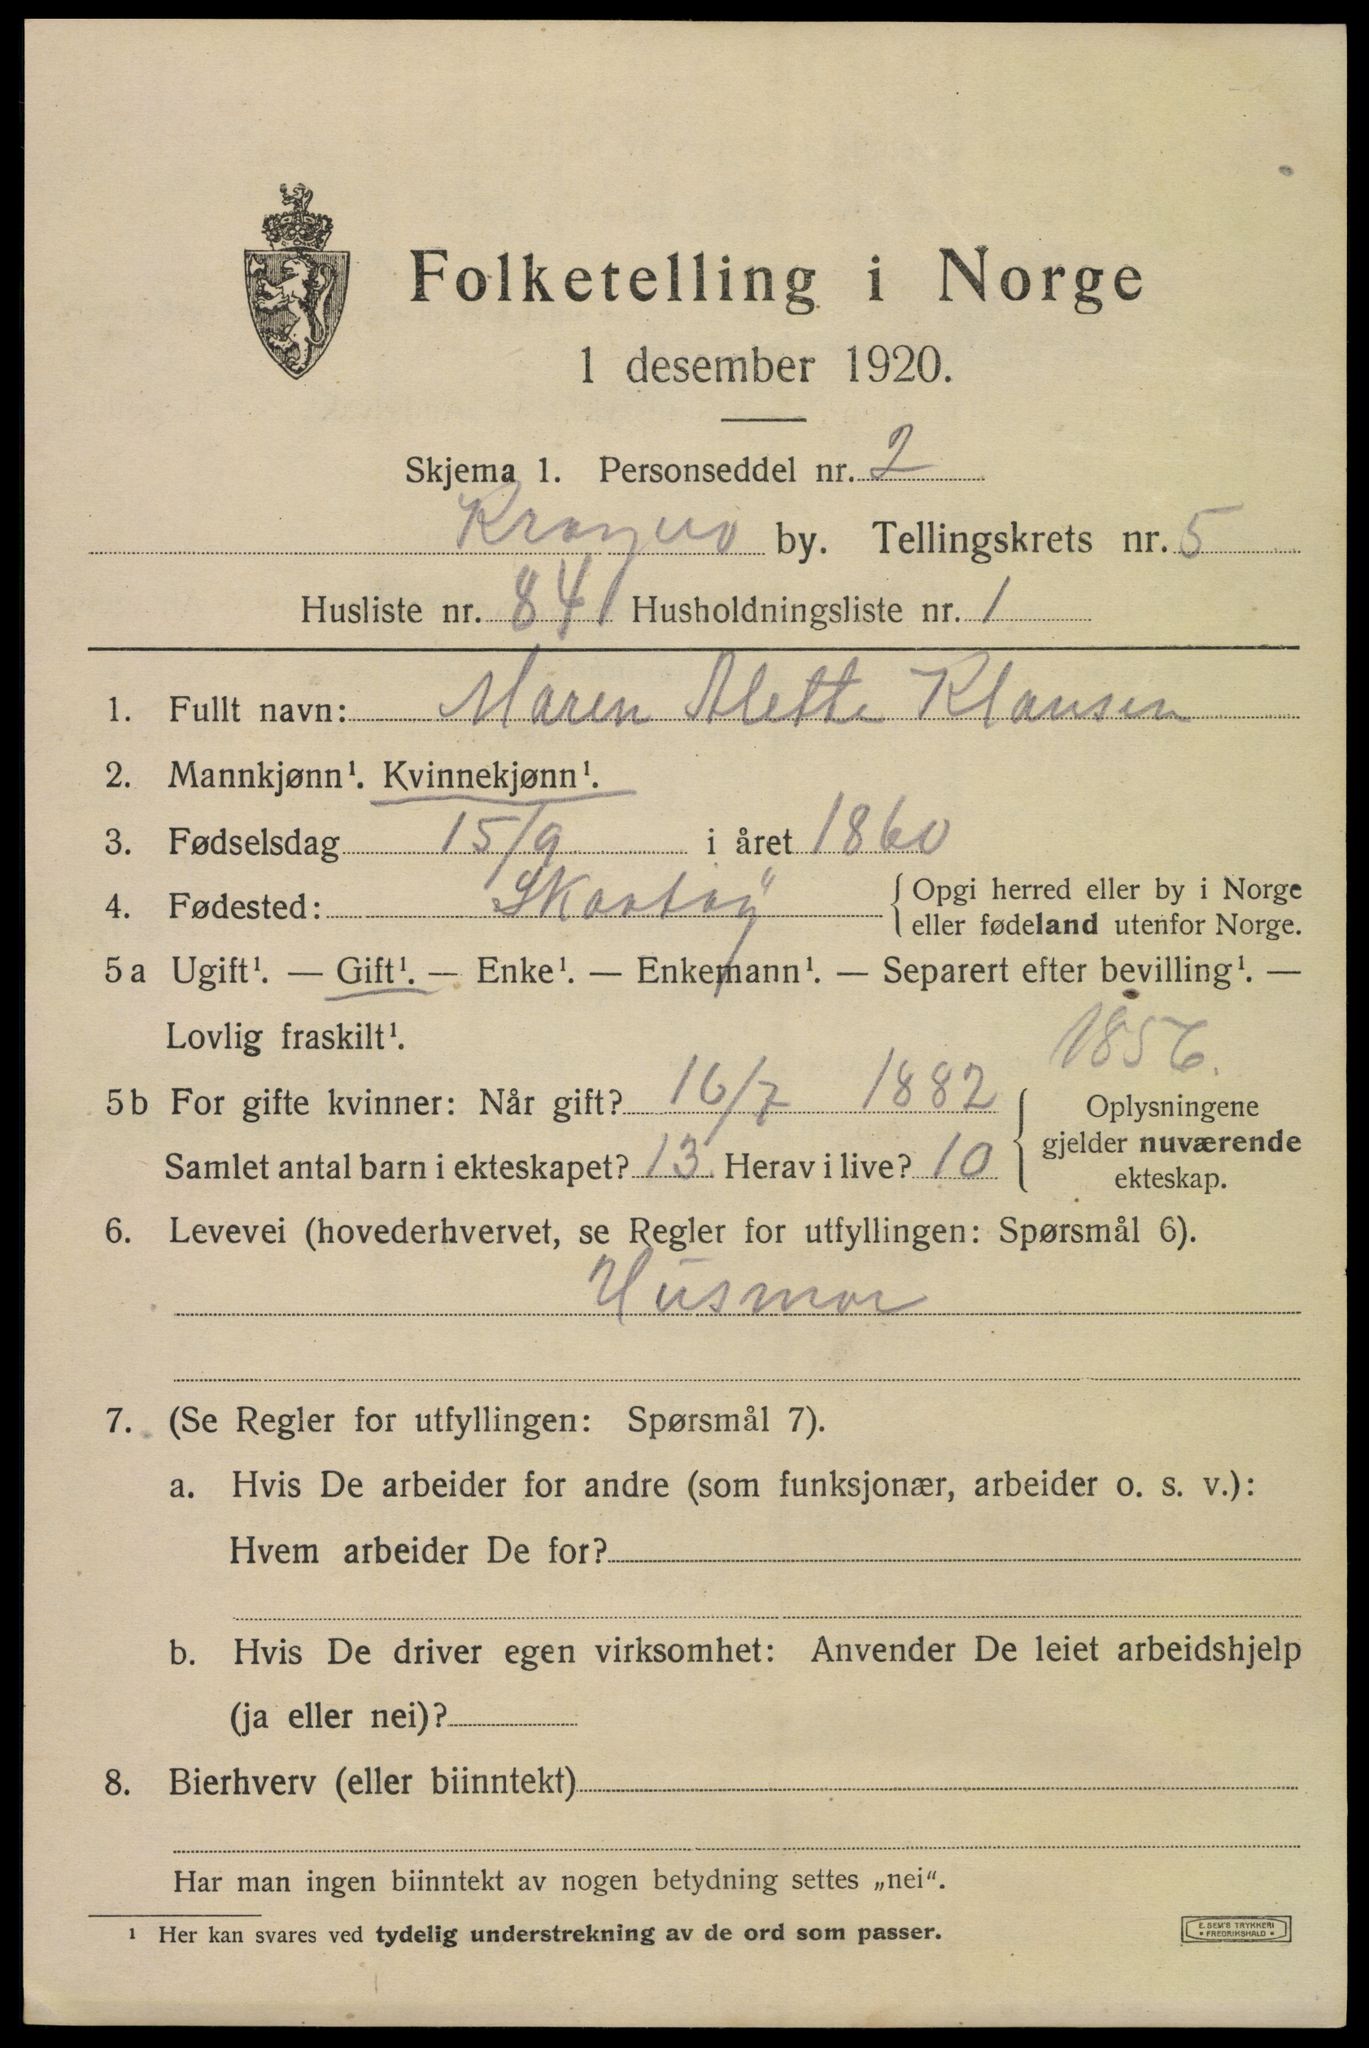 Folketelling i Norge
1 desember 1920.
Skjema 1. Personseddel nr. 2
Kragerø by. Tellingskrets nr. 5
Husliste nr. 841 Husholdningsliste nr. 1
1. Fullt navn: Maren Alette Klausen
2. Mannkjønn¹. Kvinnekjønn¹.
3. Fødselsdag 15/9 i året 1860
4. Fødested: Skaatøy { Opgi herred eller by i Norge
eller fødeland utenfor Norge.
5a Ugift¹. — Gift¹. — Enke¹. — Enkemann¹. — Separert efter bevilling¹. —
Lovlig fraskilt¹.
1856.
5b For gifte kvinner: Når gift? 16/7 1882
Samlet antal barn i ekteskapet? 13 Herav i live? 10
{ Oplysningene
gjelder nuværende
ekteskap.
6. Levevei (hovederhvervet, se Regler for utfyllingen: Spørsmål 6).
Husmor
7. (Se Regler for utfyllingen: Spørsmål 7).
a. Hvis De arbeider for andre (som funksjonær, arbeider o. s. v.):
Hvem arbeider De for?
b. Hvis De driver egen virksomhet: Anvender De leiet arbeidshjelp
(ja eller nei)?
8. Bierhverv (eller biinntekt)
Har man ingen biinntekt av nogen betydning settes „nei“.
¹ Her kan svares ved tydelig understrekning av de ord som passer.
E. SEM'S TRYKKERI
• FREDRIKSHALD •